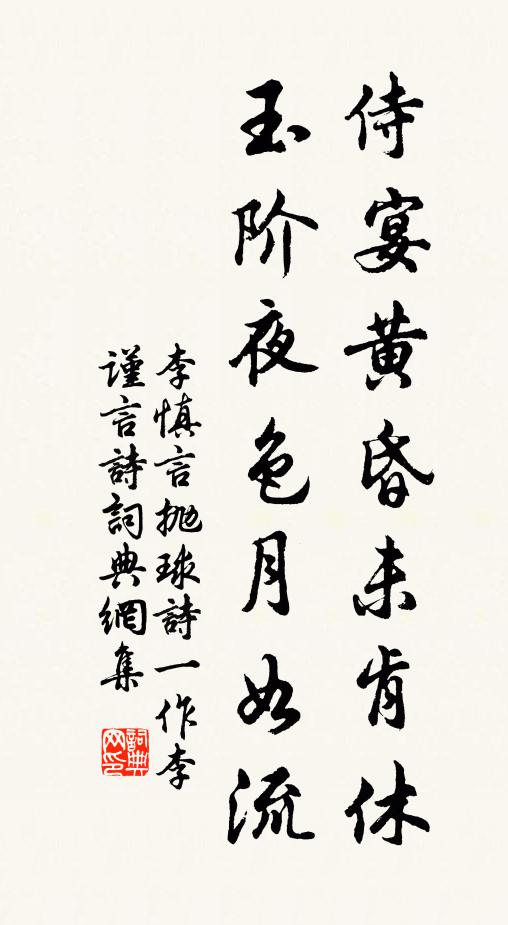 侍宴黄昏未肯休
玉阶夜色月如流
李慎言抛球詩一作李
谨言詩詞典網集
詞典网印